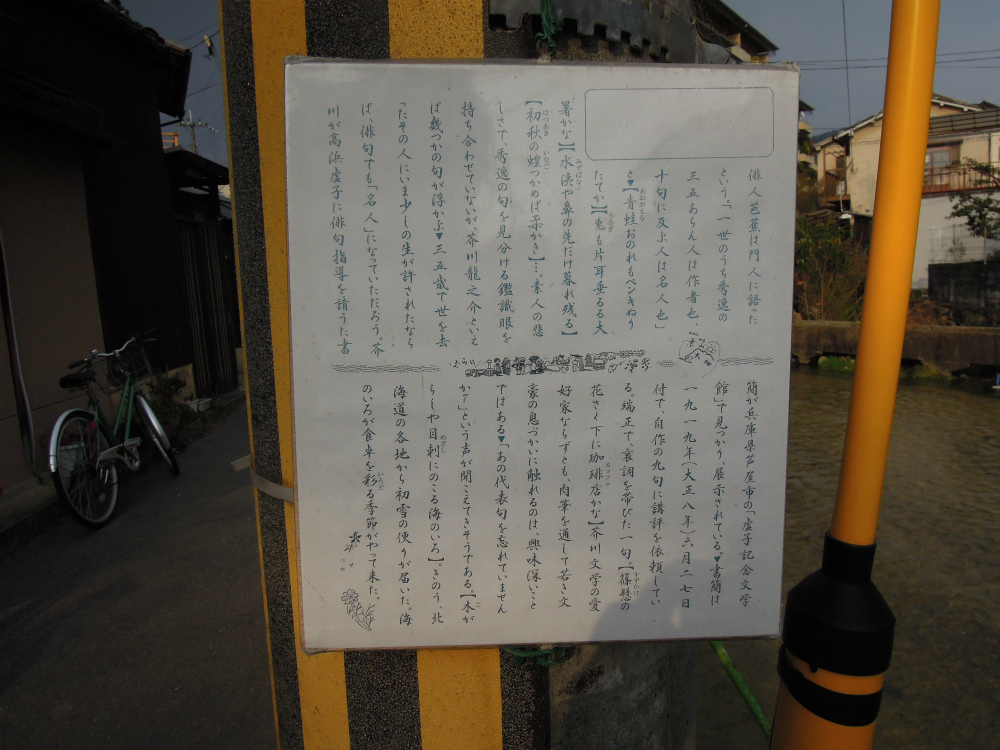 俳人芭蕉は門人に語った
という。「一世のうち秀逸の
三五あらん人は作者也、
十句に及ぶ人は名人也」
と▼【青蛙おのれもペンキぬり
たてか】【兎も片耳垂るる大
暑かな】【水洟や鼻の先だけ暮れ残る】
【初秋の蝗つかめば柔かき】…。素人の悲
しさで、秀逸の句を見分ける鑑識眼を
持ち合わせていないが、芥川龍之介といえ
ば幾つかの句が浮かぶ▼三五歳で世を去
ったその人にいま少しの生が許されたなら
ば、俳句でも「名人」になっていただろう。芥
川が高浜虚子に俳句指導を請うた書
簡が兵庫県芦屋市の「虚子記念文学
館」で見つかり、展示されている▼書簡は
一九一九年(大正八年)六月二七日
付で、自作の九句に講評を依頼してい
る。端正で、哀調を帯びた一句。【篠懸の
花さく下に珈琲店かな】芥川文学の愛
好家ならずとも、肉筆を通して若き文
豪の息づかいに触れるのは、興味深いこと
ではある▼「あの代表句を忘れていません
か?」という声が聞こえてきそうである。【木が
らしや目刺にのこる海のいろ】。きのう、北
海道の各地から初雪の便りが届いた。海
のいろが食卓を彩る季節がやって来た。